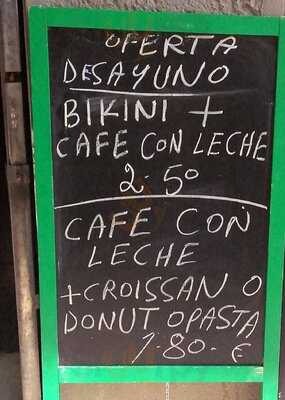 OFERTA
DESAYUNO
BIKINI +
CAFE CON LECHE
2.50
CAFE CON
LECHE
+CROISSAN O
DONUT O PASTA
1.80.€